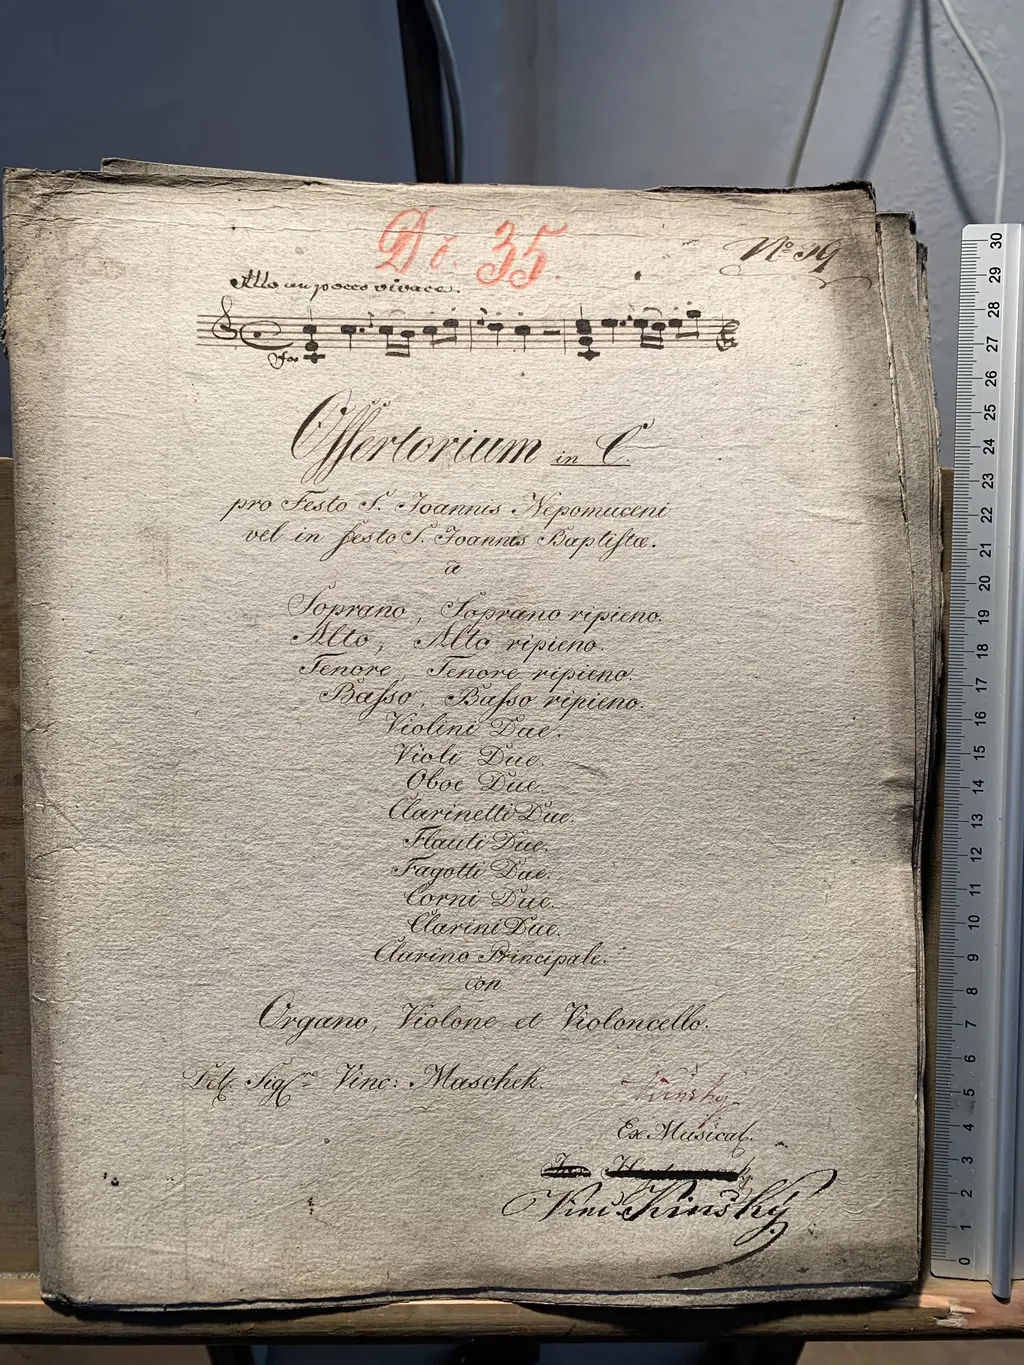 Do. 35.
No 39
Allo un pocco vivace.
Offertorium in C.
pro Festo S. Joannis Nepomuceni
vel in festo S. Joannis Baptistæ.
a
Soprano, Soprano ripieno.
Alto, Alto ripieno.
Tenore, Tenore ripieno.
Basso, Basso ripieno.
Violini Due.
Violi Due.
Oboe Due.
Clarinetti Due.
Flauti Due.
Fagotti Due.
Corni Due.
Clarini Due.
Clarino Principale.
con
Organo, Violone et Violoncello.
Del Sigre Vinc: Maschek.
Kinsky
Ex Musical.
Vinc Kinsky
30
29
28
27
26
25
24
23
22
21
20
19
18
17
16
15
14
13
12
11
10
9
8
7
6
5
4
3
2
1
0